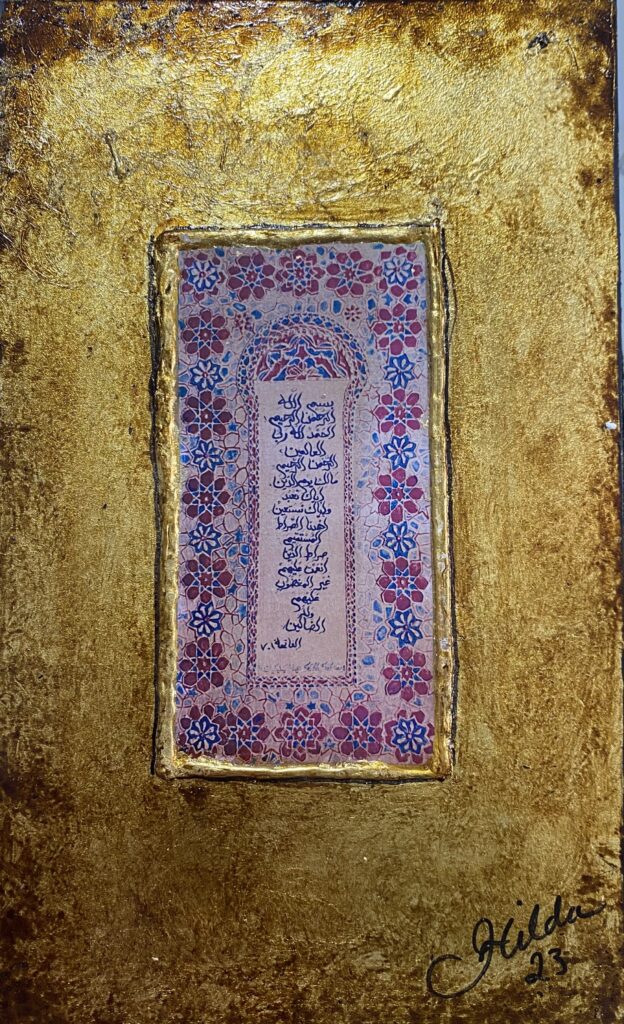 بسم الله
الرحمن الرحيم
الحمد لله رب
العالمين
الرحمن الرحيم
مالك يوم الدين
اياك نعبد
واياك نستعين
اهدنا الصراط
المستقيم
صراط الذين
انعمت عليهم
غير المغضوب
عليهم
ولا
الضالين
الفاتحة ١-٧
Hilda
23